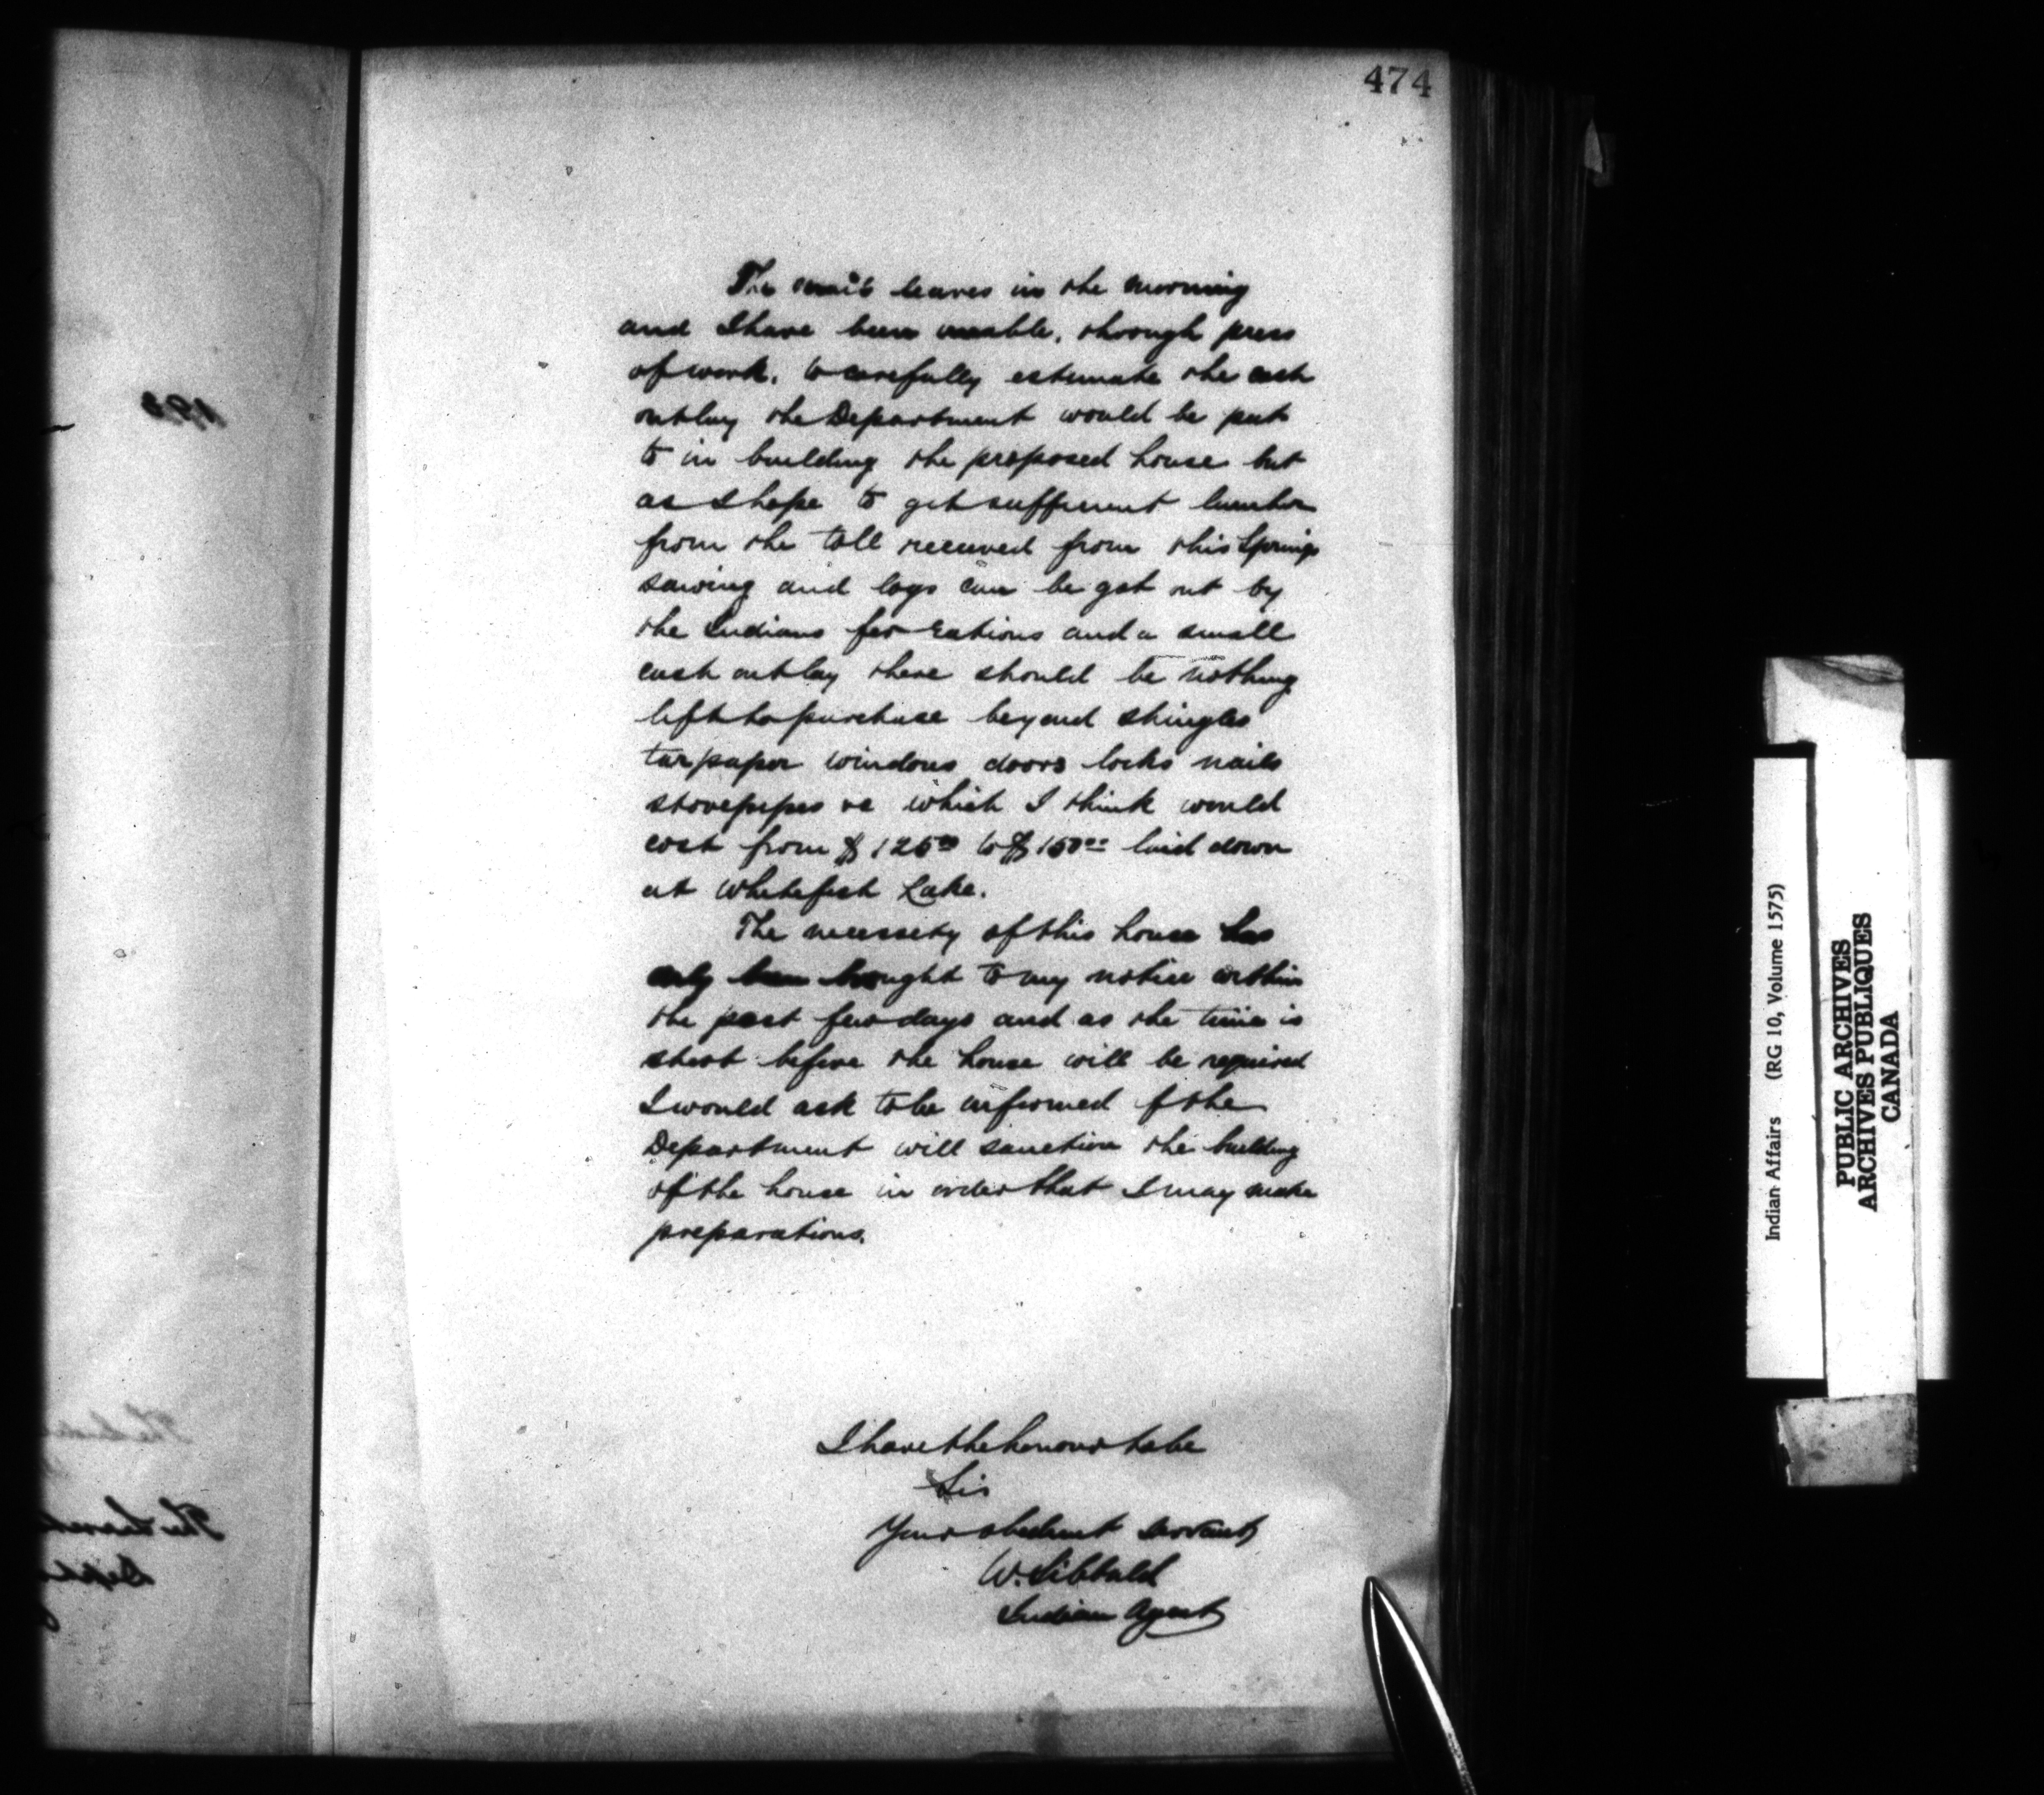 474
The mail leaves in the morning
and I have been unable, through press
of work, to carefully estimate the cash
outlay the Department would be put
to in building the proposed house but
as I hope to get sufficient lumber
from the toll received from this Springs
sawing and logs can be got out by
the Indians for rations and a small
cash outlay there should be nothing
left to purchase beyond shingles
tarpaper windows doors locks nails
stovepipes &c which I think would
cost from $125.00 to $150.00 laid down
at Whitefish Lake.
The necessity of this house has
only been brought to my notice within
the past few days and as the time is
short before the house will be required
I would ask to be informed if the
Department will sanction the building
of the house in order that I may make
preparations.
I have the honour to be
Sir
Your obedient servant
W. Sibbald
Indian Agent
Indian Affairs (RG 10, Volume 1575)
PUBLIC ARCHIVES
ARCHIVES PUBLIQUES
CANADA